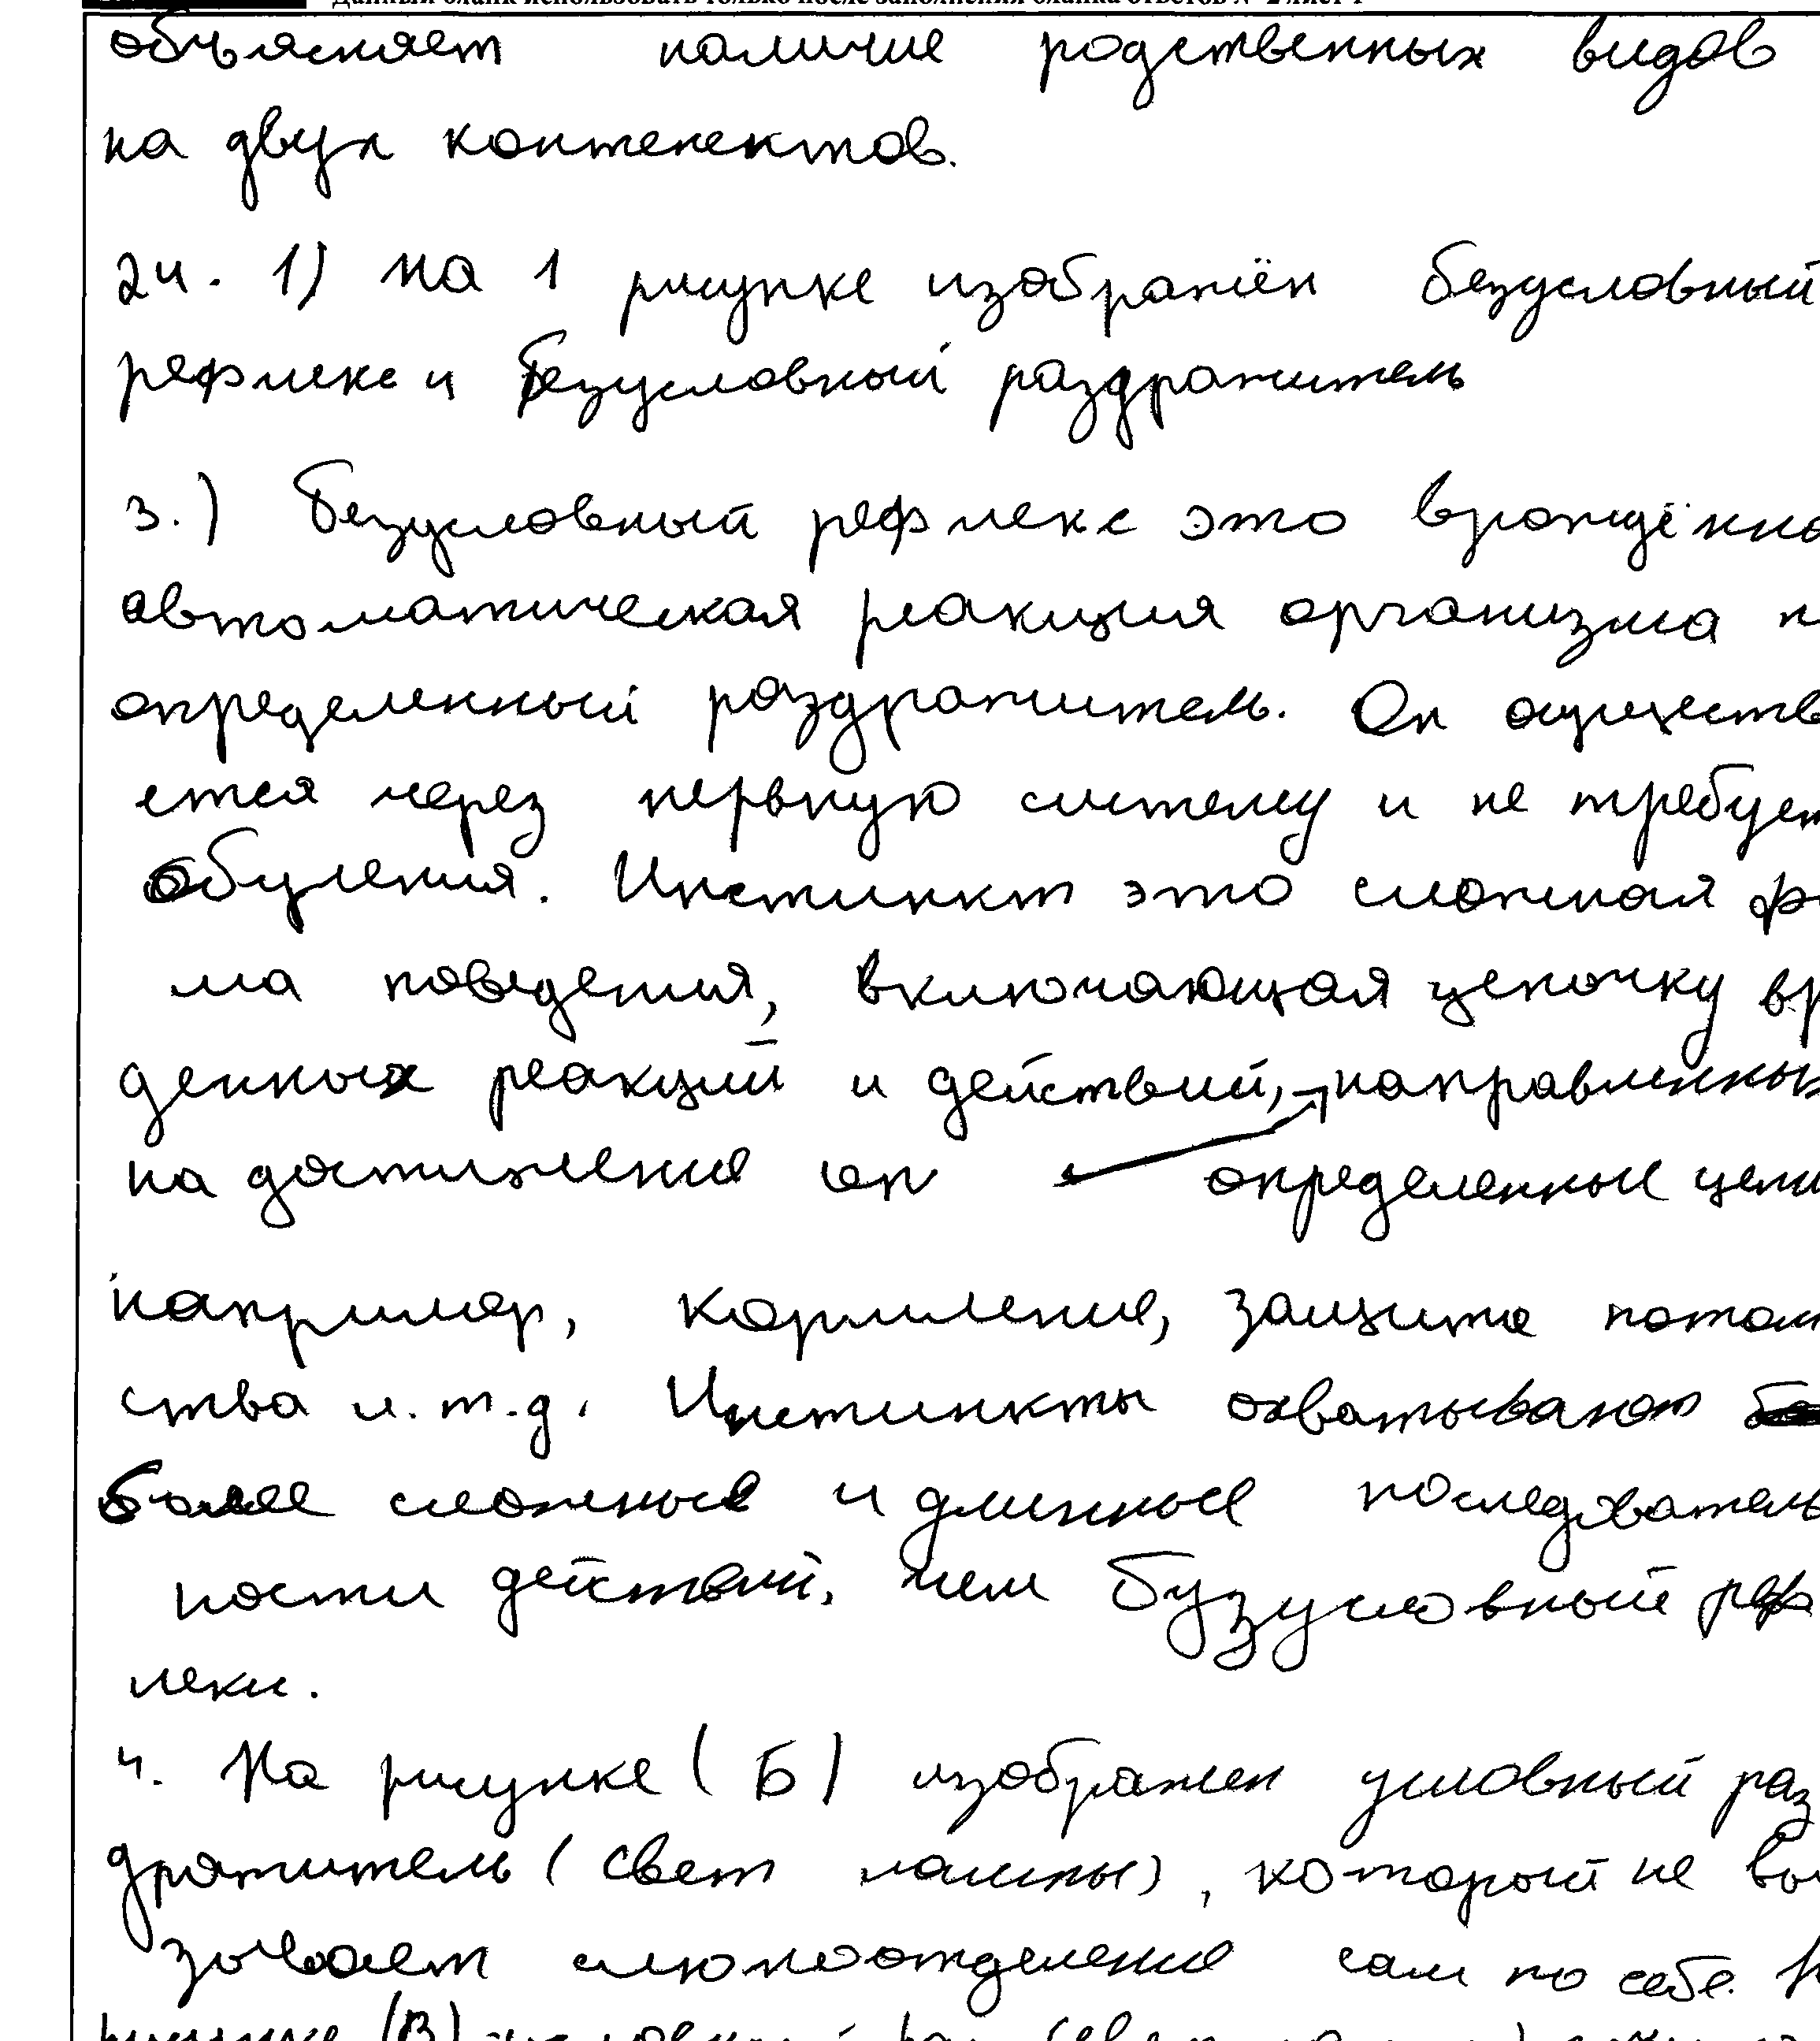 Данный бланк использовать только после заполнения бланка ответов № 2 лист 1
объясняет наличие родственных видов
на двух контенентов.
24. 1) На 1 рисунке изображён безусловный
рефлекс и безусловный раздражитель
3.) Безусловный рефлекс это врождённо
автоматическая реакция организма н
определенный раздражитель. Он осуществ
ется через нервную систему и не требует
обучения. Инстинкт это сложная фо
ма поведения, включающая цепочку вр
денных реакций и действий, направленных
на достижение определенные цели
например, кормление, защита потом
ства и.т.д. Инстинкты охватывают
более сложные и длинные последователь
ности действий, чем бузусловный реф
лекс.
4. На рисунке (Б) изображен условный раз
дражитель (свет лампы), который не вы
зывает слюноотделение сам по себе. Н
рисунке (В)